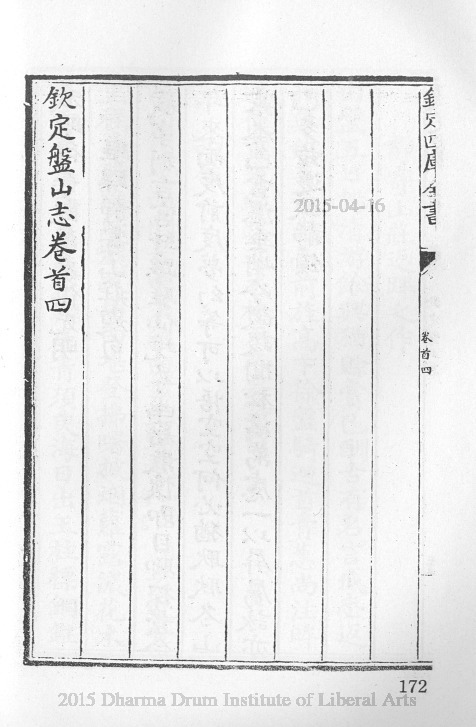 欽定四庫全書
卷首四
欽定盤山志卷首四
2015-04-16
172
2015 Dharma Drum Institute of Liberal Arts